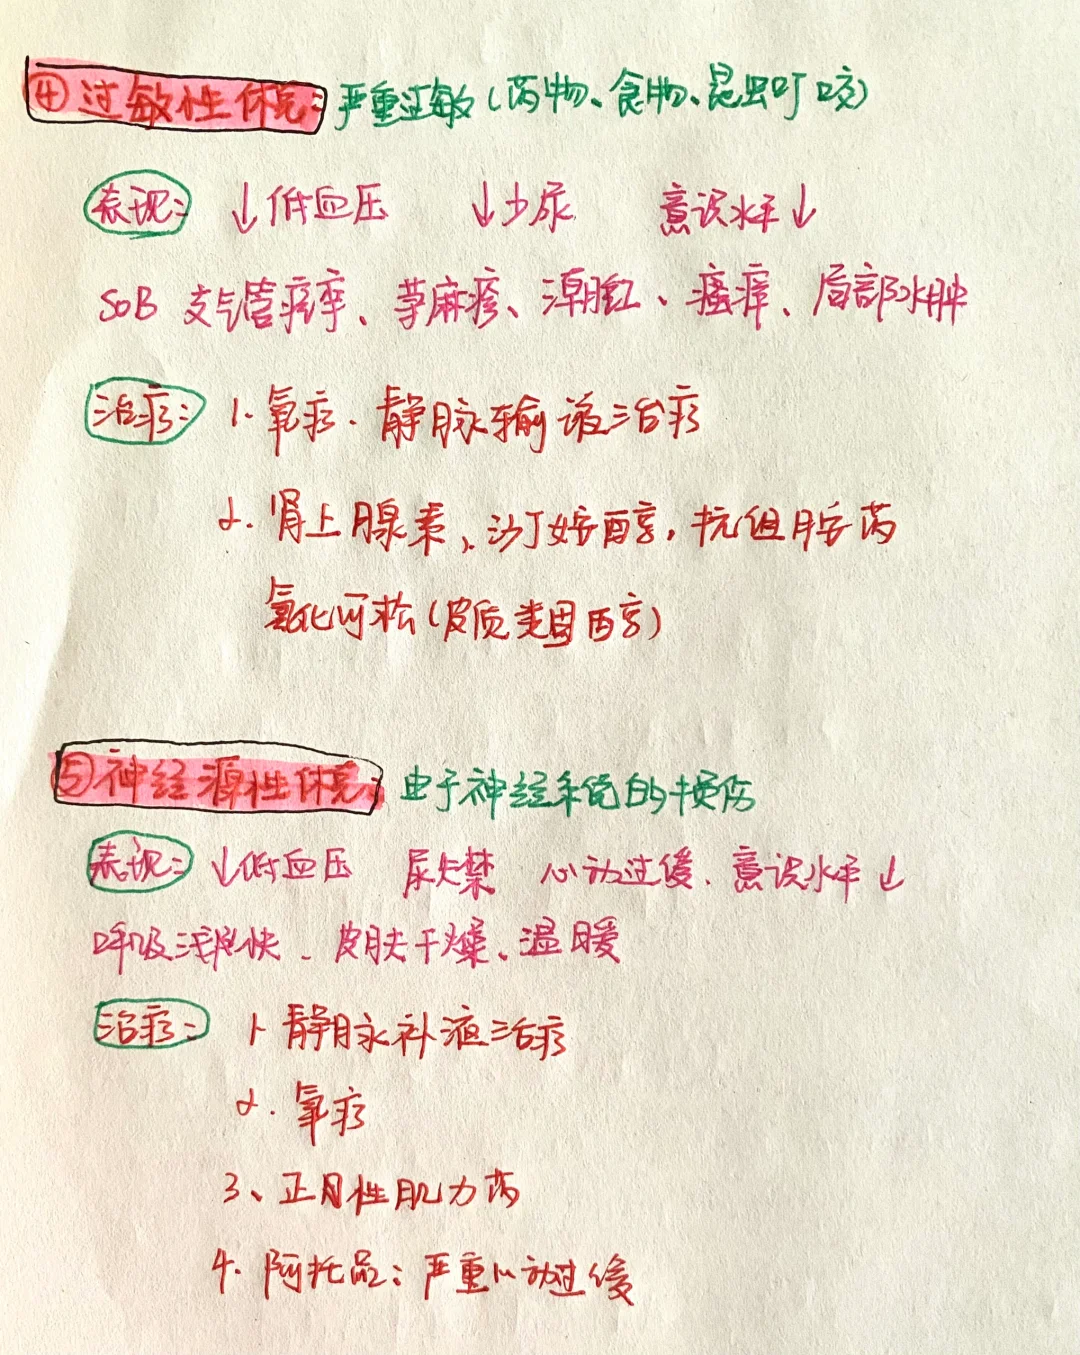 ④过敏性休克：严重过敏(药物、食物、昆虫叮咬)
表现：↓低血压 ↓少尿 意识水平↓
SOB 支气管痉挛、荨麻疹、潮红、瘙痒、局部水肿
治疗：1.氧疗.静脉输液治疗
2.肾上腺素、沙丁胺醇,抗组胺药
氢化可松(皮质类固醇)
⑤神经源性休克：由于神经系统的损伤
表现：↓低血压 尿失禁 心动过缓、意识水平↓
呼吸浅快、皮肤干燥、温暖
治疗：1.静脉补液治疗
2.氧疗
3、正性肌力药
4.阿托品：严重心动过缓